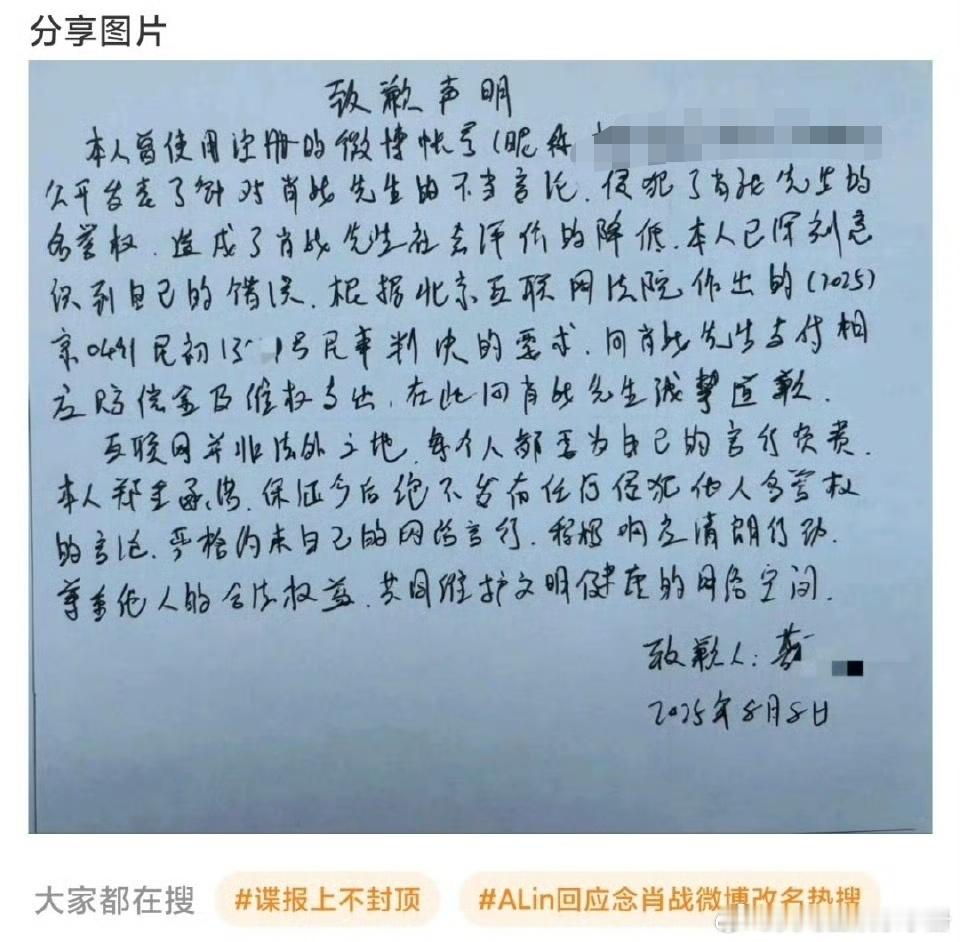 分享图片
致歉声明
本人曾使用注册的微博帐号(昵称
公开发表了针对肖战先生的不当言论,侵犯了肖战先生的
名誉权,造成了肖战先生社会评价的降低.本人已深刻意
识到自己的错误.根据北京互联网法院作出的(2025)
京0491民初13 1号民事判决的要求,向肖战先生支付相
应赔偿金及维权支出,在此向肖战先生诚挚道歉.
互联网并非法外之地,每个人都要为自己的言行负责.
本人郑重承诺,保证今后绝不发布任何侵犯他人名誉权
的言论,严格约束自己的网络言行,积极响应清朗行动.
尊重他人的合法权益,共同维护文明健康的网络空间.
致歉人:
2025年8月8日
大家都在搜 #谍报上不封顶 #ALin回应念肖战微博改名热搜